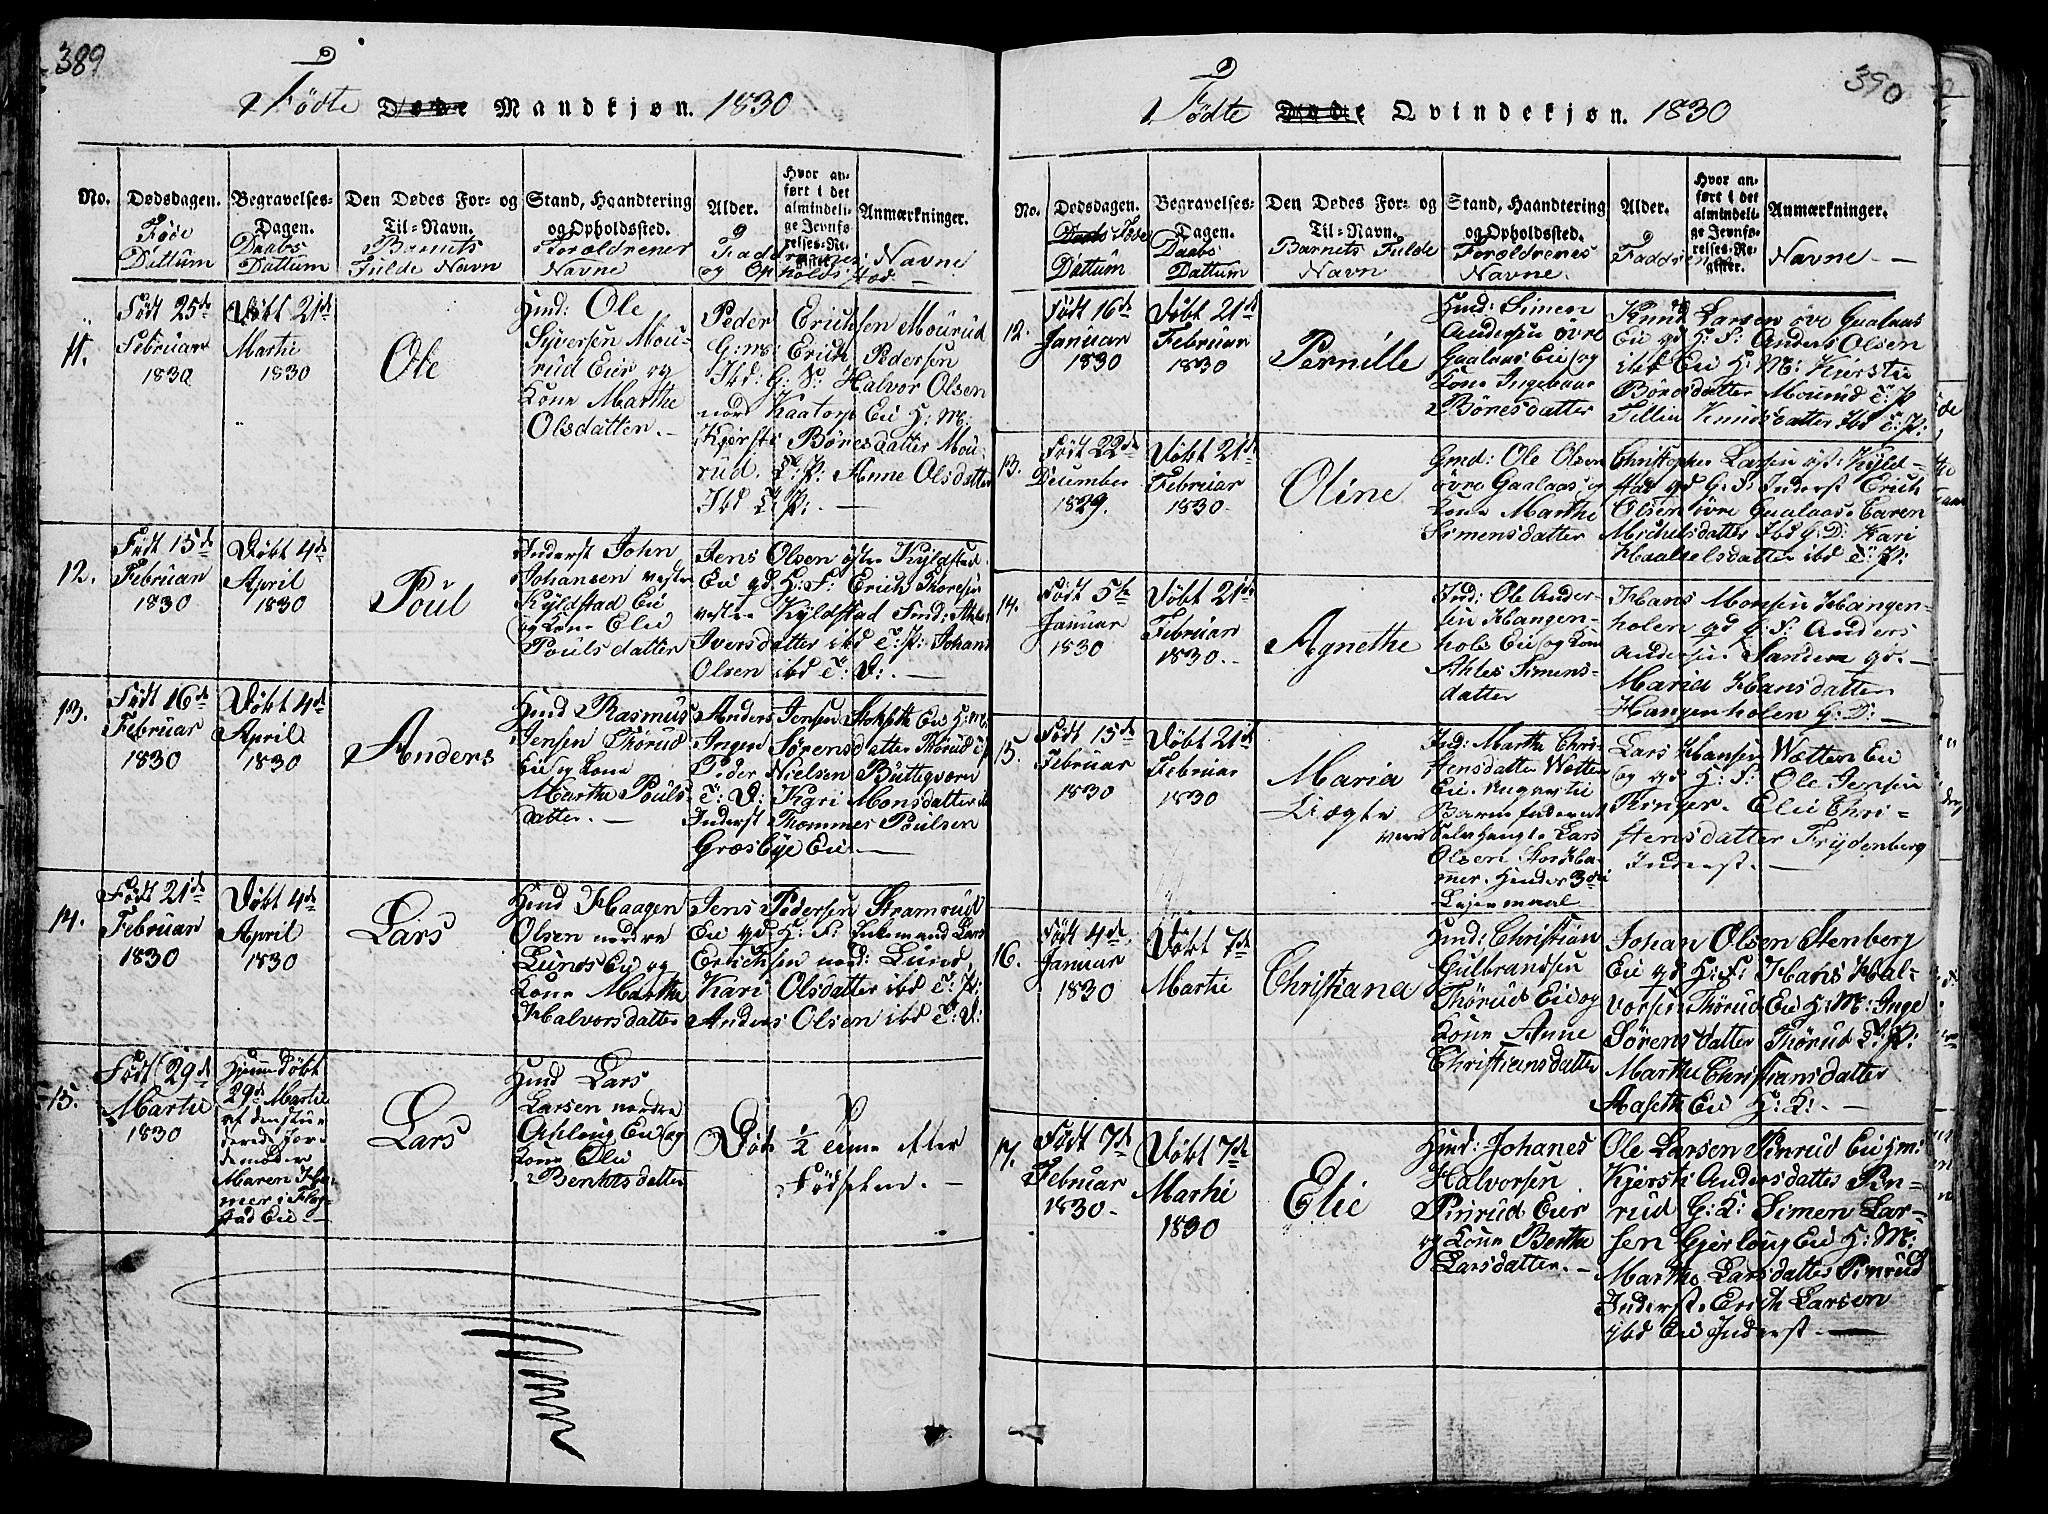 389
Fødte Døde Mandkjøn. 1830
No.
Dødsdagen.
Føde
Dattum
Begravelses-
Dagen.
Daabs
Dattum
Den Dødes For- og
Til-Navn.
Barnets
Fulde Navn
Stand, Haandtering
og Opholdssted.
Foroldrenes
Navne
Alder.
Hvor an-
ført i det
almindeli-
ge Jevnfø-
relses-Re-
gister.
Anmærkninger.
Faddrenes Navne
og Opholds sted
11.
Født 25de
Februar
1830
Døbt 21de
Martii
1830
Ole
Huusd: Ole
Syversen Mou-
rud Eier og
Kone Marthe
Olsdatter.
Peder Erichsen Mourud
G: m: Erich Pedersen
Ibd: G: S: Halvor Olsen
nor Kaatorp Eie H: M:
Kjersti Børesdatter Mou-
rud. T: P: Anne Olsdatter
Ibd T: P:
12.
Født 15de
Februar
1830
Døbt 4de
April
1830
Poul
Inderst John
Johansen vestre
Kyldstad Eie
og Kone Elie
Poulsdatter
Jens Olsen østre Kyldstad
Eie gd H: F: Erich Thoresen
vestre Kyldstad
Iversdatter ibd T: P: Johan
Olsen ibd T: D:
13.
Født 16de
Februar
1830
Døbt 4de
April
1830
Anders
Huusd Rasmus
Jensen Thørud
Eie og Kone
Marthe Pouls-
datter.
Anders Jensen Eie H: M:
Inger Sørensdatter Thørud T: P
Peder Nielsen Bütteqværn
T: D: Kari Monsdatter
Inderst Thommes Poulsen
Græsbye Eie
14.
Født 21de
Februar
1830
Døbt 4de
April
1830
Lars
Huusd Haagen
Olsen nordre
Lunds Eie og
Kone Marthe
Halvorsdatter
Jens Pedersen Stramrud
Eie gd H: F: Lars
Erichsen nord: Lund
Kari Olsdatter ibd T: P:
Anders Olsen ibd T: D:
15.
Født 29de
Martii
1830
Hjemmedøbt
29de Martii
af den stu-
derede Jor-
demoder
Maren Ha-
mer i Flag-
stad Eie
Lars
Huusd Lars
Larsen nordre
Ahloug Eie og
Kone Elie
Bentsdatter
Død ½ time efter
Fødselen.
390
Fødte Døde Qvindekjøn. 1830
No.
Dødsdagen.
Daabs Føde
Dattum
Begravelses-
Dagen.
Daabs
Dattum
Den Dødes For- og
Til-Navn.
Barnets Fulde
Navn
Stand, Haandtering
og Opholdssted.
Foroldrenes
Navne.
Alder.
Hvor an-
ført i det
almindeli-
ge Jevnfø-
relses-Re-
gister.
Anmærkninger.
Faddrenes Navne
12.
Født 16de
Januar
1830
Døbt 21de
Februar
1830
Pernille
Huusd: Simen
Andersen øvre
Gaalaas Eie og
Kone Ingebaar
Børesdatter
Knud Larsen øvr Gaalaas
Eie gd H: F: Anders Olsen
ibd Eie H: M: Kiersti
Børesdatter Mourud T: P
Sellie Knudsdatter Ibd T: P:
13.
Født 22de
December
1829.
Døbt 21de
Februar
1830
Oline
Gmd: Ole Olsen
øvre Gaalaas og
Kone Marthe
Simensdatter
Christopher Larsen øst: Kyld-
stad gd G: F: Inderst Erich
Olsen øvre Gaalaas. Caren
Michelsdatter Ibd G: D: Kari
ibd T: P:
14.
Født 5te
Januar
1830
Døbt 21de
Februar
1830.
Agnethe
Ind: Ole Ander-
sen Hangen-
hols Eie og Kone
Ahles Simens-
datter
Hans Monsen Hangen-
holen gd G: F: Anders
Andersen Sanden gd.
Maria Hansdatter
Hangenholen G: D:
15.
Født 15de
Februar
1830
Døbt 21de
Februar
1830
Maria
Uægte
Ind: Marthe Chri-
stensdatter Wetten
Eie.
Barnefader
Lars
Olsen Storha-
mer. Hendes 3die
Leiermaal
Lars Hansen Wetten Eie
og gd H: F: Ole Jensen
Elie Chri-
stensdatter Frydenberg
Inderst.
16.
Født 4de
Januar
1830
Døbt 7de
Martii
Christiana
Huusd: Christian
Gulbrandsen
Thørud Eie og
Kone Anne
Christiansdatter
Johan Olsen Stenberg
Eie gd H: F: Hans Hal-
vorsen Thørud Eie H: M: Inge
Sørensdatter Thørud T: P:
Marthe Christiansdatter
Aaseth Eie H: K:
17.
Født 7de
Februar
1830.
Døbt 7de
Martii
1830
Elie
Huusd: Johanes
Halvorsen
Pinrud Eier
og Kone Berthe
Larsdatter.
Ole Larsen Pinrud Eie gm:
Kjersti Andersdatter Pin-
rud G: K: Simen Lar-
sen Gjerloug Eie H: M:
Marthe Larsdatter Pinrud
Inderst. Erich Larsen
ibd Eie Inderst.